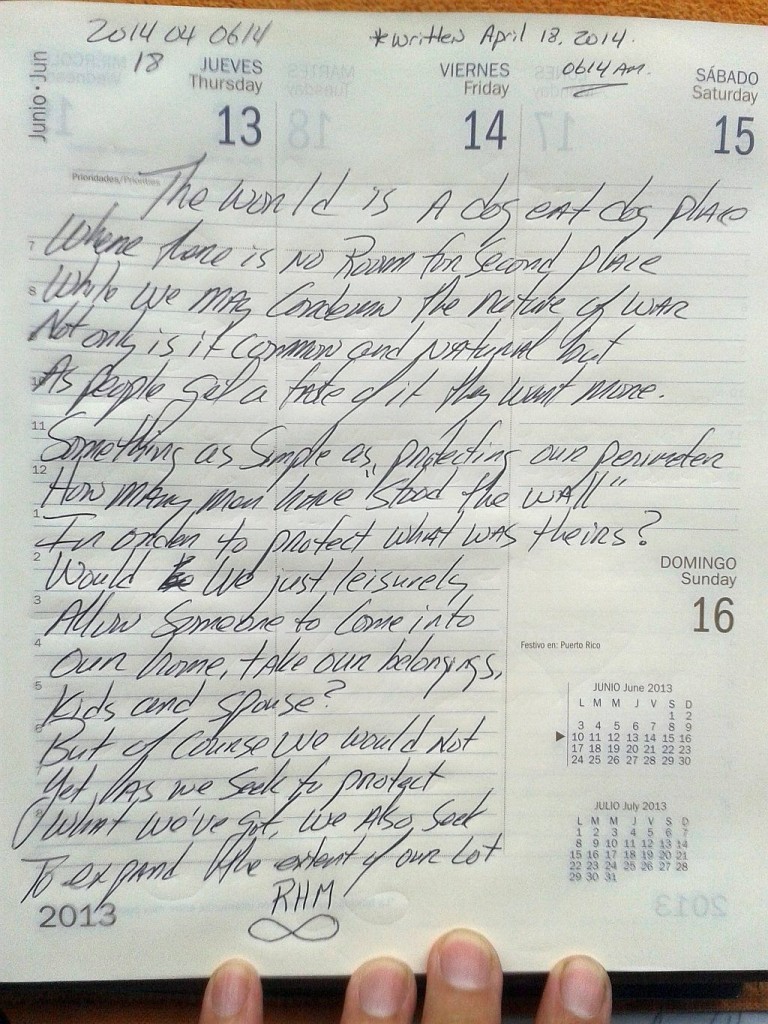 2014 04 0614
18
*written April 18, 2014.
0614 AM.
Junio • Jun
JUEVES
Thursday
13
VIERNES
Friday
14
SÁBADO
Saturday
15
Prioridades/Priorities
The world is A dog eat dog place
Where there is NO Room for second place
While we may Condemn the nature of WAR
Not only is it common and natural but
As people get a taste of it they want more.
Something as simple as protecting our perimeter
How many men have "stood the wall"
In order to protect what was theirs?
Would we just leisurely
Allow someone to come into
Our home, take our belongings,
Kids and spouse?
But of course we would not
Yet, As we seek to protect
What we've got, we Also seek
To expand the extent of our lot
RHM
∞
7
8
10
11
12
1
2
3
4
5
6
DOMINGO
Sunday
16
Festivo en: Puerto Rico
JUNIO June 2013
L M M J V S D
1 2
3 4 5 6 7 8 9
10 11 12 13 14 15 16
17 18 19 20 21 22 23
24 25 26 27 28 29 30
JULIO July 2013
L M M J V S D
1 2 3 4 5 6 7
8 9 10 11 12 13 14
15 16 17 18 19 20 21
22 23 24 25 26 27 28
29 30 31
2013